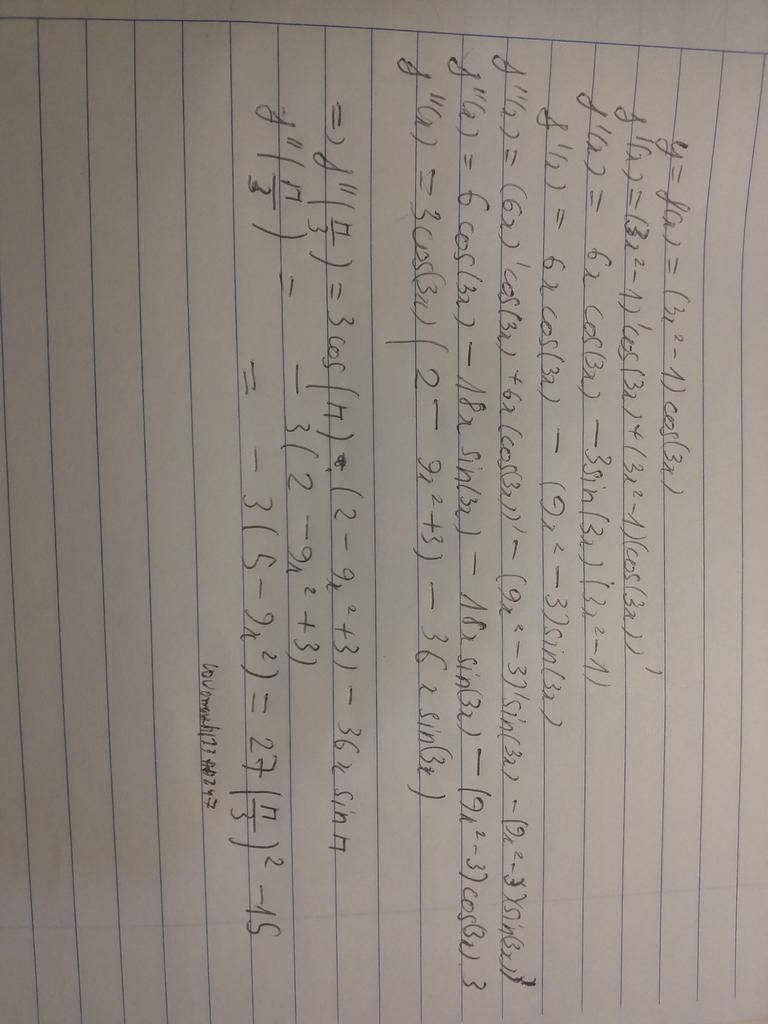 y = f(x) = (3x² - 1) cos(3x)
f'(x) = (3x² - 1)' cos(3x) + (3x² - 1)(cos(3x))'
f'(x) = 6x cos(3x) - 3sin(3x)·(3x² - 1)
f'(x) = 6x cos(3x) - (9x² - 3) sin(3x)
f''(x) = (6x)' cos(3x) + 6x (cos(3x))' - (9x² - 3)' sin(3x) - (9x² - 3)(sin(3x))'
f''(x) = 6 cos(3x) - 18x sin(3x) - 18x sin(3x) - (9x² - 3) cos(3x)·3
f''(x) = 3cos(3x) (2 - 9x² + 3) - 36x sin(3x)
=> f''(π/3) = 3 cos(π)·(2 - 9x² + 3) - 36x sin π
f''(π/3) = - 3(2 - 9x² + 3)
= - 3(5 - 9x²) = 27(π/3)² - 15